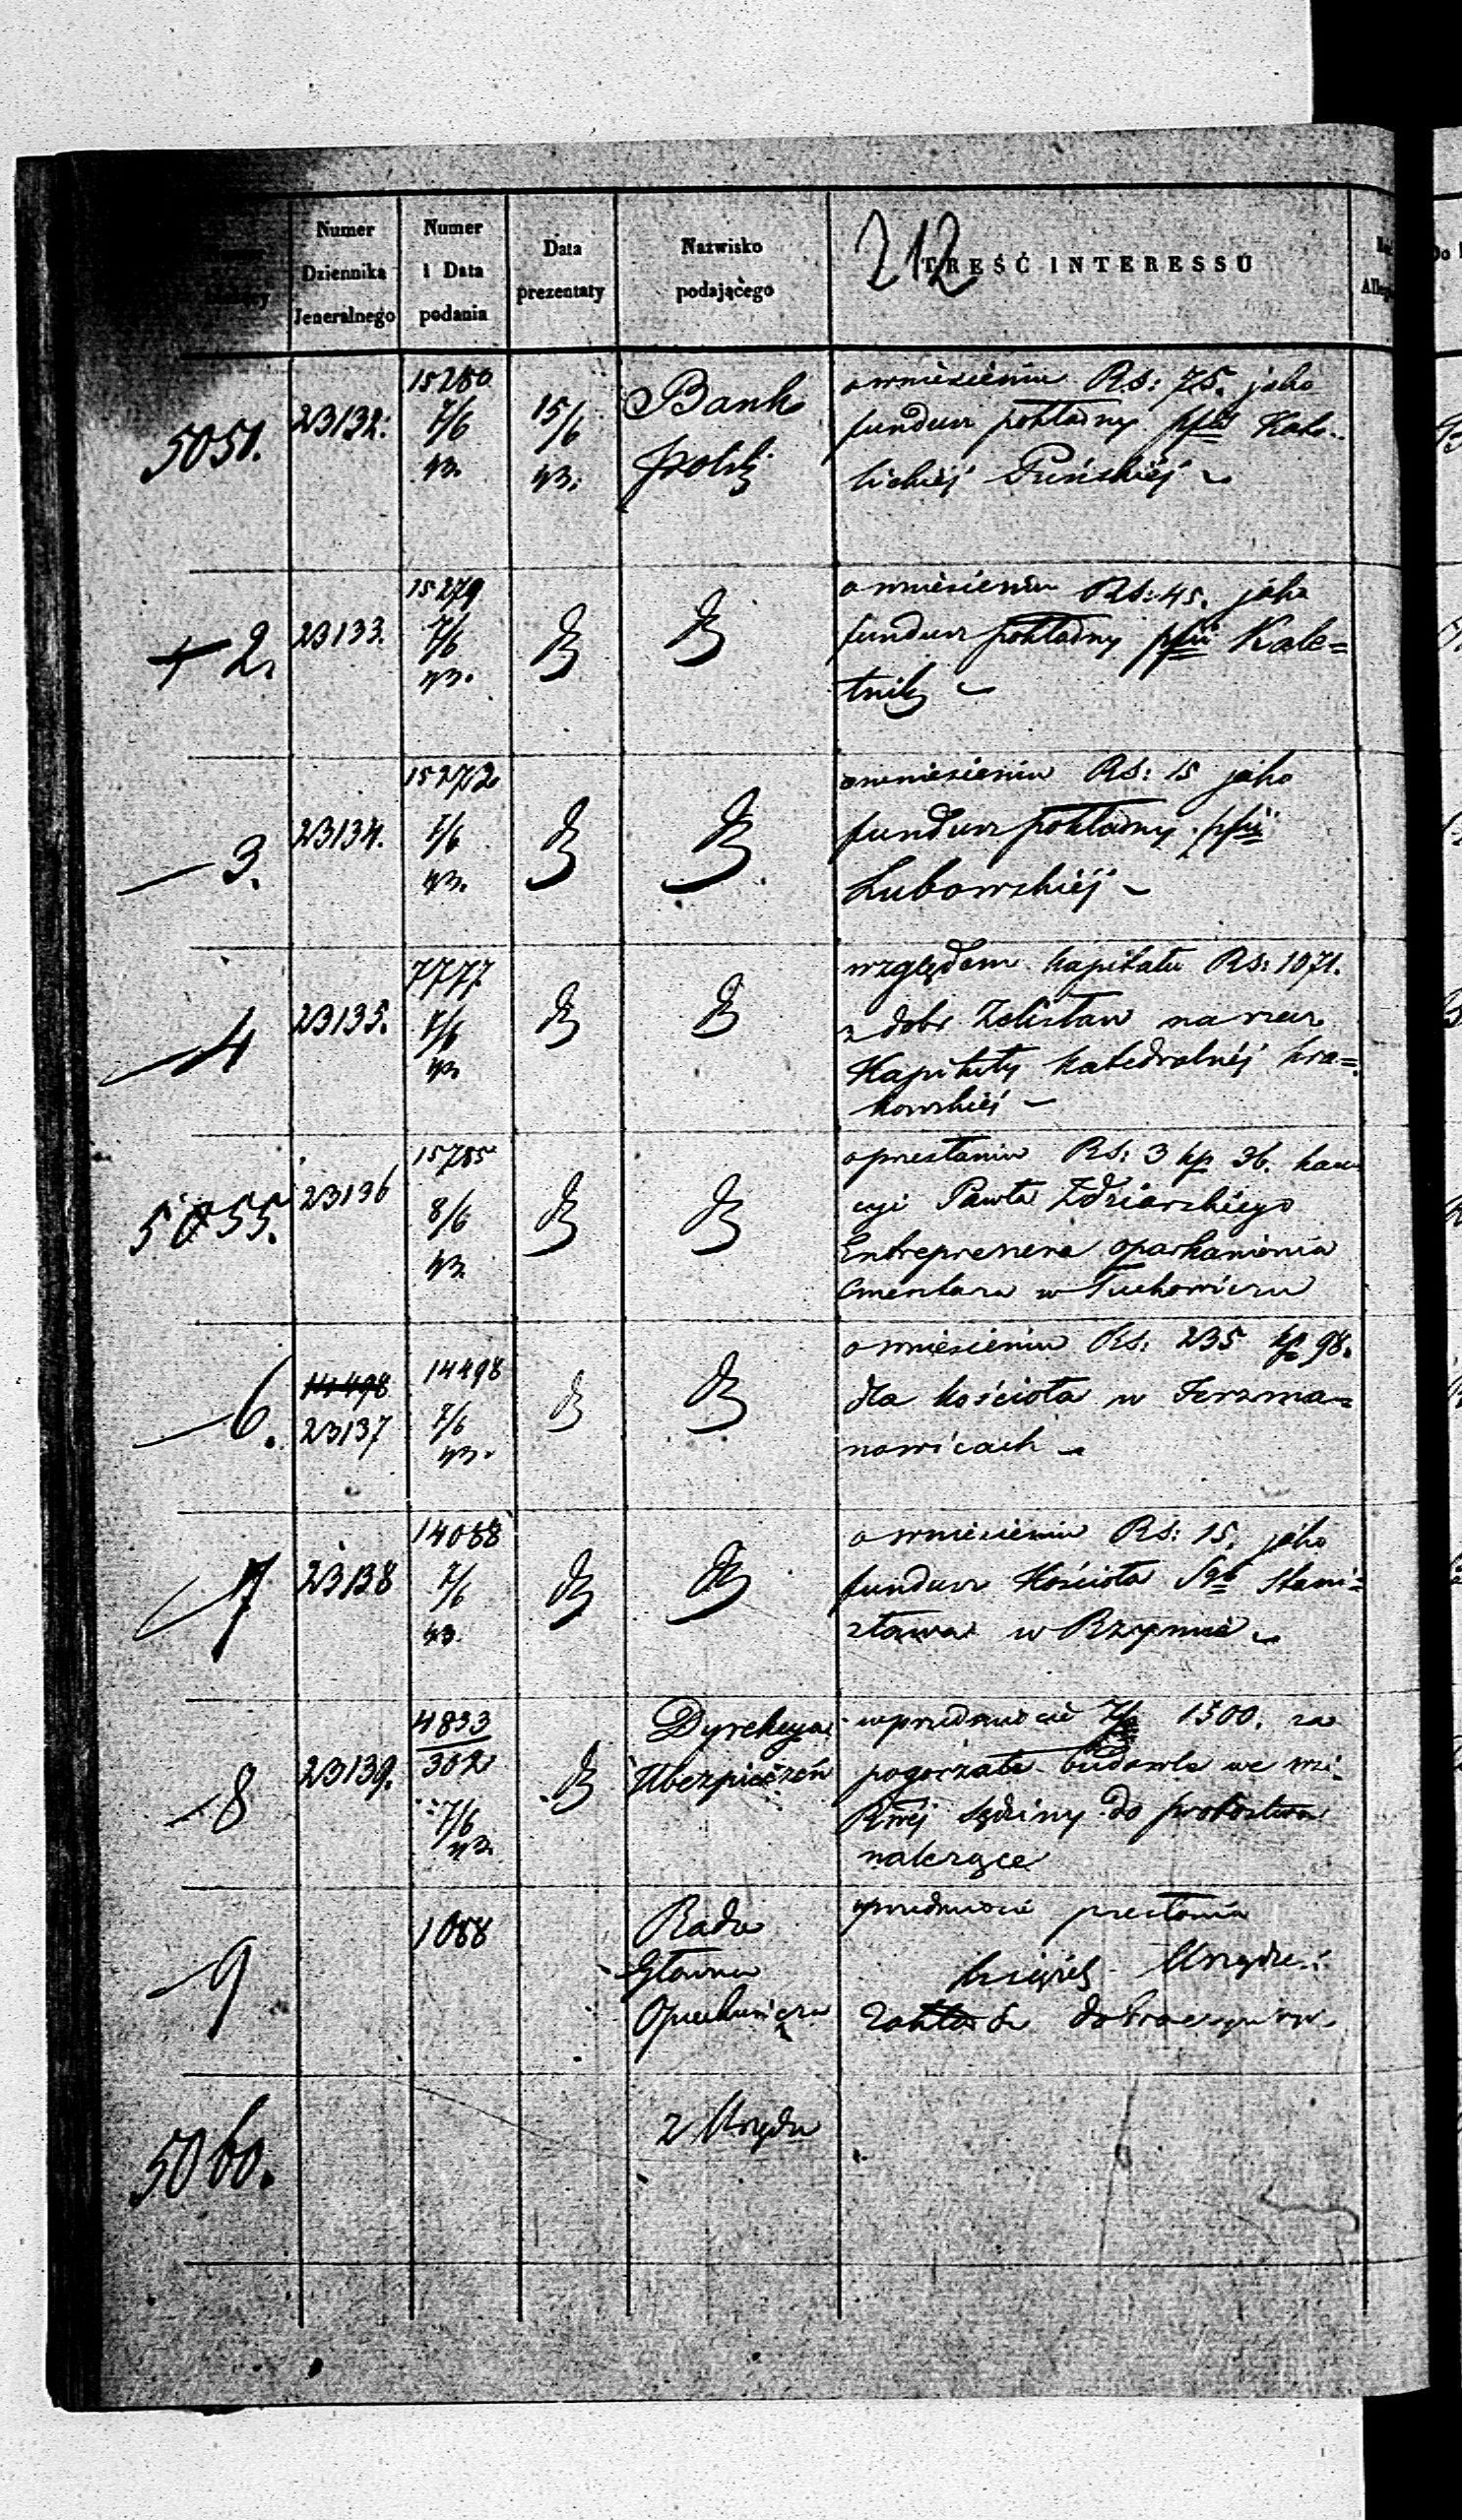 212
Numer
Dziennika
Jeneralnego
Numer
i Data
podania
Data
prezentaty
Nazwisko
podającego
TREŚĆ INTERESSU
5051.
23132.
15280
7/6
43.
15/6
43.
Bank
polski
o wniesieniu Rs: 75. jako
fundusz pokładny
lickiéj Puńskiéj
2.
23133.
15279
7/6
43.
o wniesieniu Rs: 45. jako
fundusz pokładny Kale=
tnik
3.
23134.
15272
7/6
43.
o wniesieniu Rs: 15 jako
fundusz pokładny
Lubowskiéj
4
23135.
7777
7/6
43
względem kapitału Rs: 1071.
z dobr Zelisław na rzecz
Kapituły Katedralnéj kra=
kowskiéj
5055.
23136
15785
8/6
43.
o przesłaniu Rs: 3 kp 36. kau
cyi Pawła Zdziarskiego
Entreprenera oparkanienia
Cmentarza w Tuchowiczu
6.
14498
23137
14498
7/6
43.
o wniesieniu Rs: 235 kp 98.
dla kościoła w Jerzma=
nowicach
7
23138
14088
7/6
43.
o wniesieniu Rs: 15. jako
fundusz Kościoła Sgo Stani=
sława w Rzymie
8
23139.
4833
302
7/6
43.
Dyrekcya
Ubezpieczeń
w przedmiocie 1500. za
pogorzałe budowle we wsi
Sędziny do probostwa
należące
9
1088
Rada
Główna
Opiekuńcza
w przedmiocie przesłania
książek Urządze:
Zakładów dobroczynnych
5060.
z Urzędu